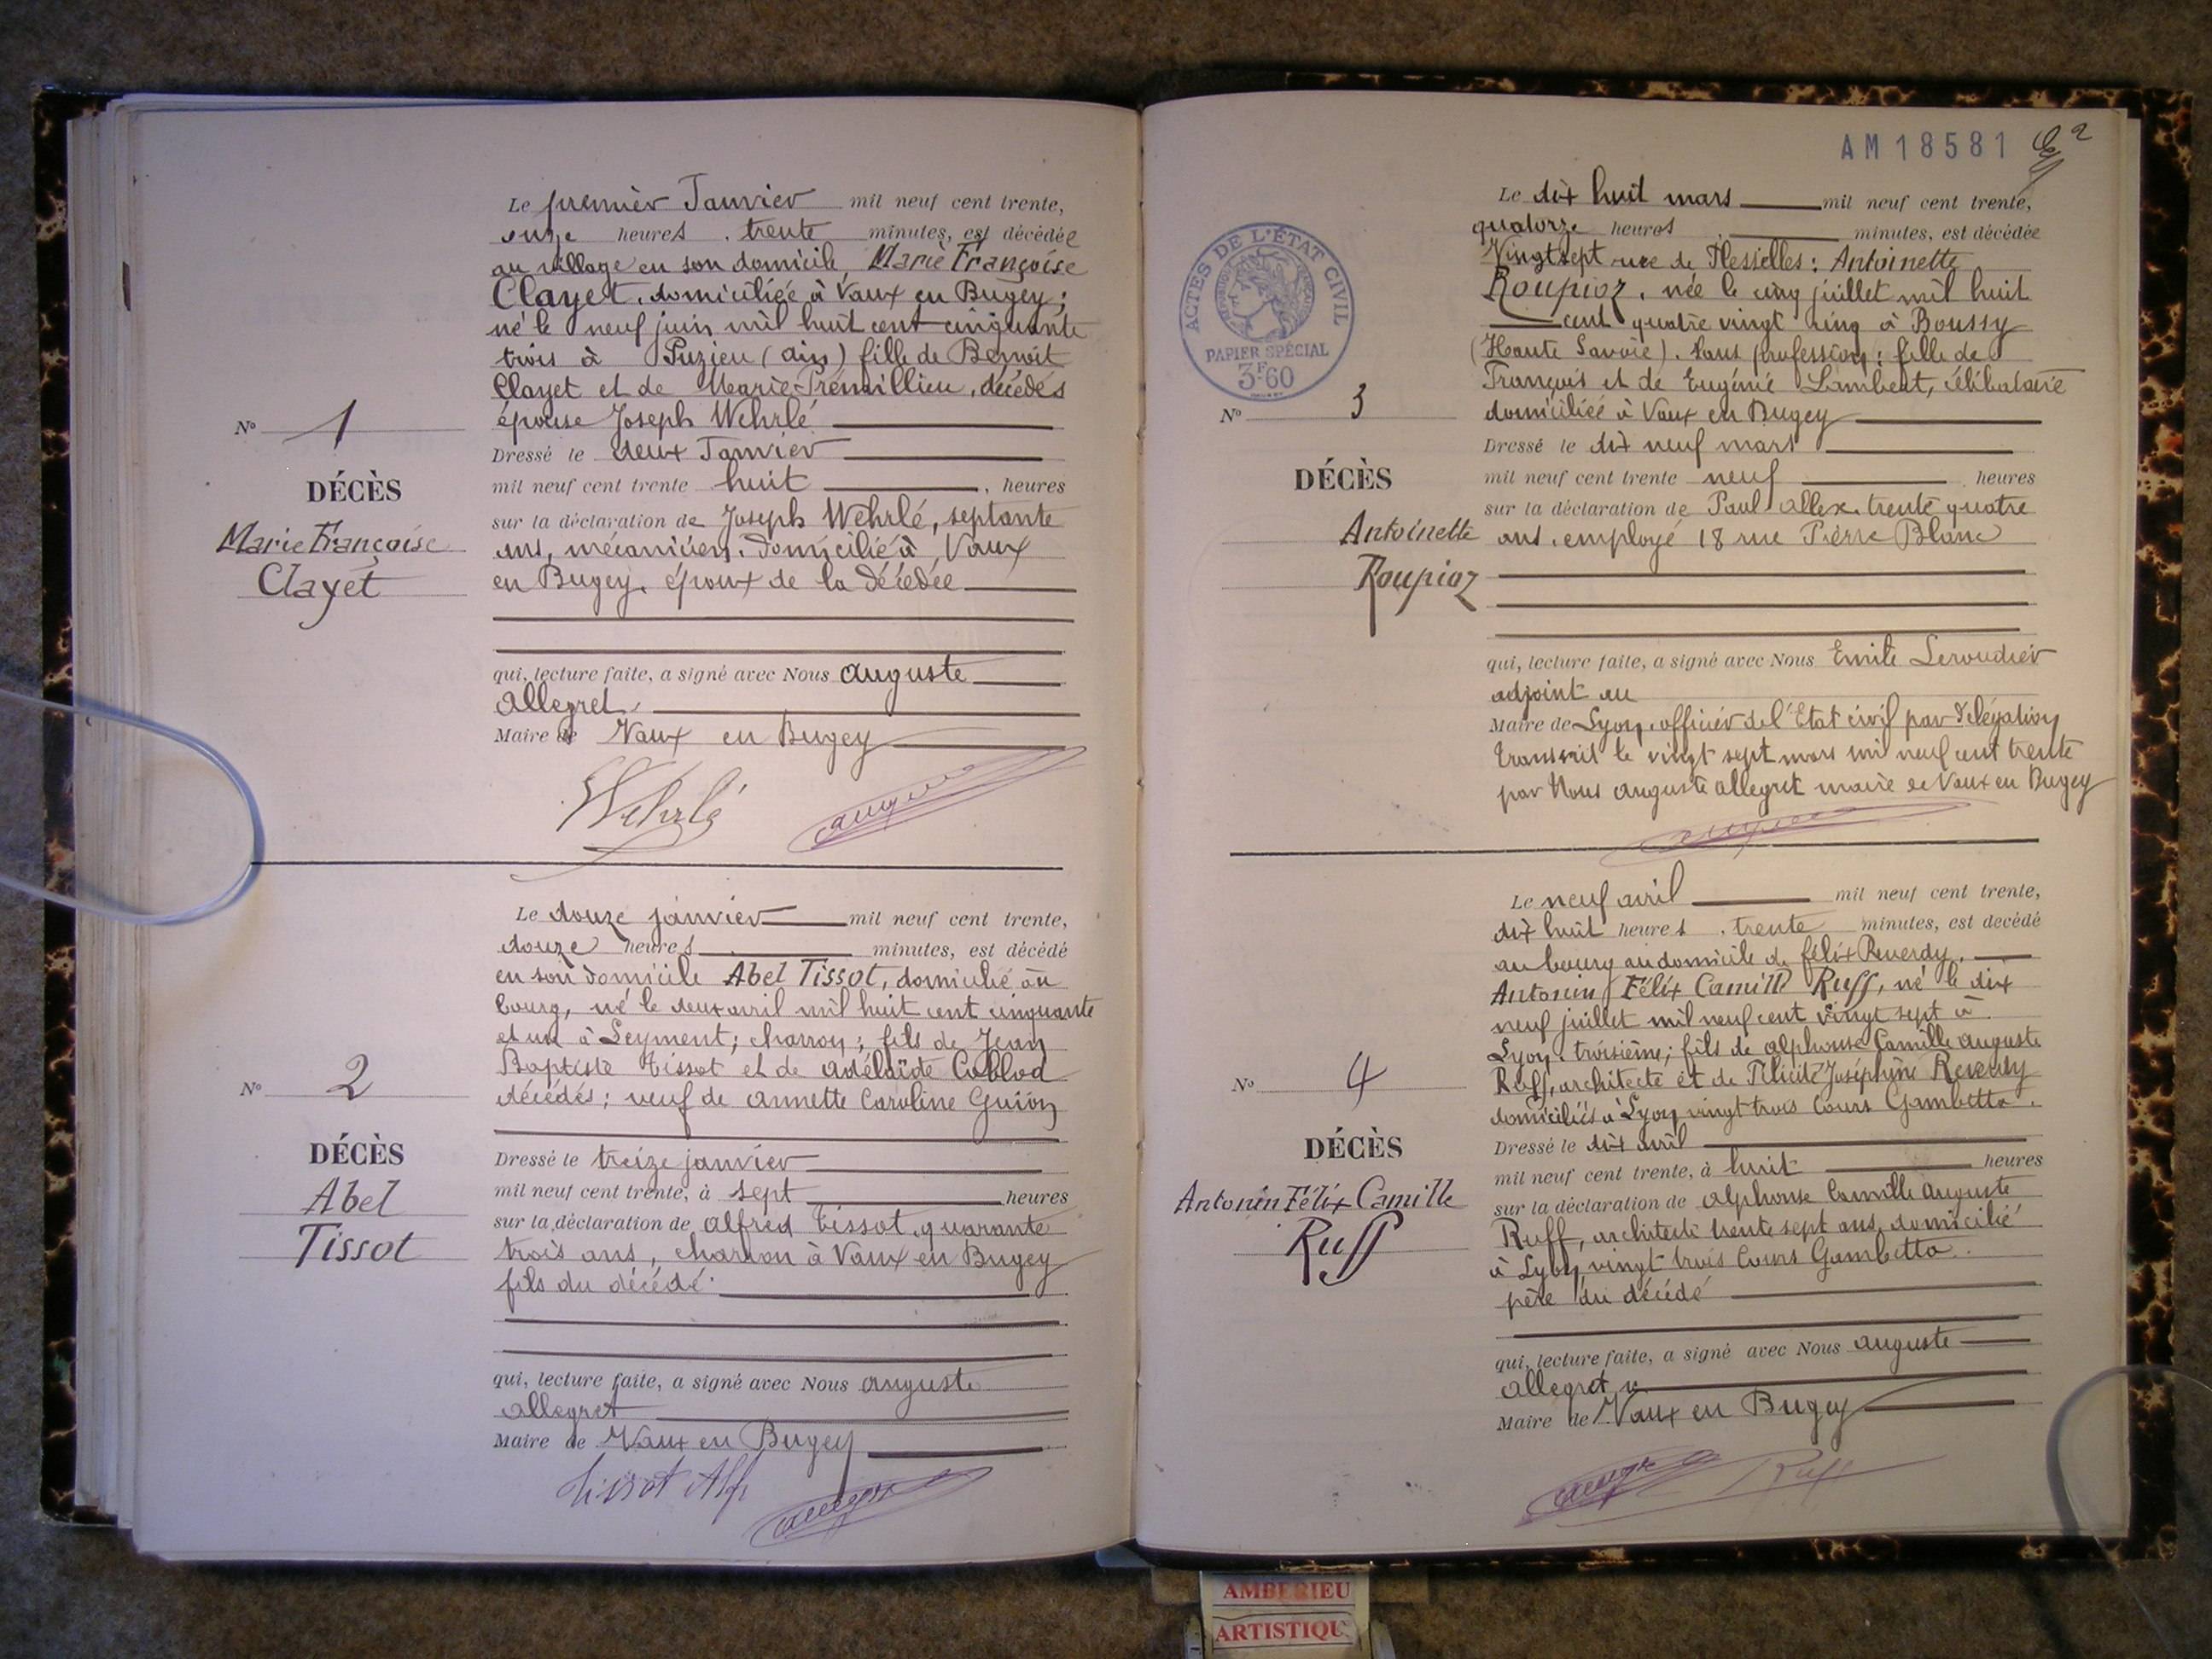 Le premièr Janvier mil neuf cent trente,
onze heures, trente minutes, est décédée
au village en son domicile, Marie Françoise
Clayet, domiciliée à Vaux en Bugey;
né le neuf juin mil huit cent cinquante
trois à Puzieu (ain) fille de Benoit
Clayet et de Marie Prémillieu, décédés
épouse Joseph Wehrlé
Dressé le deux Janvier
mil neuf cent trente huit, heures
sur la déclaration de Joseph Wehrlé, septante
ans, mécanicien, domicilié à Vaux
en Bugey, époux de la décédée
qui, lecture faite, a signé avec Nous auguste
allegret,
Maire de Vaux en Bugey
Wehrlé
N° 1
DÉCÈS
Marie Françoise
Clayet
Le douze janvier mil neuf cent trente,
douze heures minutes, est décédé
en son domicile Abel Tissot, domicilié au
bourg, né le deux avril mil huit cent cinquante
et un à Leyment; charron; fils de Jean
Baptiste Tissot et de adélaïde
décédés; veuf de annette Caroline Guion
Dressé le treize janvier
mil neuf cent trente, à sept heures
sur la déclaration de alfred Tissot, quarante
trois ans, charron à Vaux en Bugey
fils du décédé.
qui, lecture faite, a signé avec Nous auguste
allegret
Maire de Vaux en Bugey
Tissot Alf
N° 2
DÉCÈS
Abel
Tissot
AM 18581
2
ACTES DE L'ÉTAT CIVIL
PAPIER SPÉCIAL
3F60
Le dix huit mars mil neuf cent trente,
quatorze heures minutes, est décédée
Vingt sept rue de Flesselles: Antoinette
Roupioz, née le cinq juillet mil huit
cent quatre vingt cinq à Boussy
(Haute Savoie). Sans profession; fille de
François et de Eugénie Lambert, célibataire
domiciliée à Vaux en Bugey
Dressé le dix neuf mars
mil neuf cent trente neuf heures
sur la déclaration de Paul allex, trente quatre
ans, employé 18 rue Pierre Blanc
qui, lecture faite, a signé avec Nous Emile Leroudier
adjoint au
Maire de Lyon, officier de l'Etat civil par délégation
transcrit le vingt sept mars mil neuf cent trente
par Nous auguste allegret maire de Vaux en Bugey
N° 3
DÉCÈS
Antoinette
Roupioz
Le neuf avril mil neuf cent trente,
dix huit heures, trente minutes, est decédé
au bourg au domicile de félix Reverdy,
Antonin Félix Camille Ruff, né le dix
neuf juillet mil neuf cent vingt sept à
Lyon, troisième; fils de alphonse Camille auguste
Ruff, architecte et de Félicité Joséphine Reverdy
domiciliés à Lyon vingt trois Cours Gambetta.
Dressé le dix avril
mil neuf cent trente, à huit heures
sur la déclaration de alphonse Camille auguste
Ruff, architecte trente sept ans, domicilié
à Lyon, vingt trois Cours Gambetta.
père du décédé
qui, lecture faite, a signé avec Nous auguste
allegret
Maire de Vaux en Bugey
Ruff
N° 4
DÉCÈS
Antonin Félix Camille
Ruff
AMBERIEU
ARTISTIQU